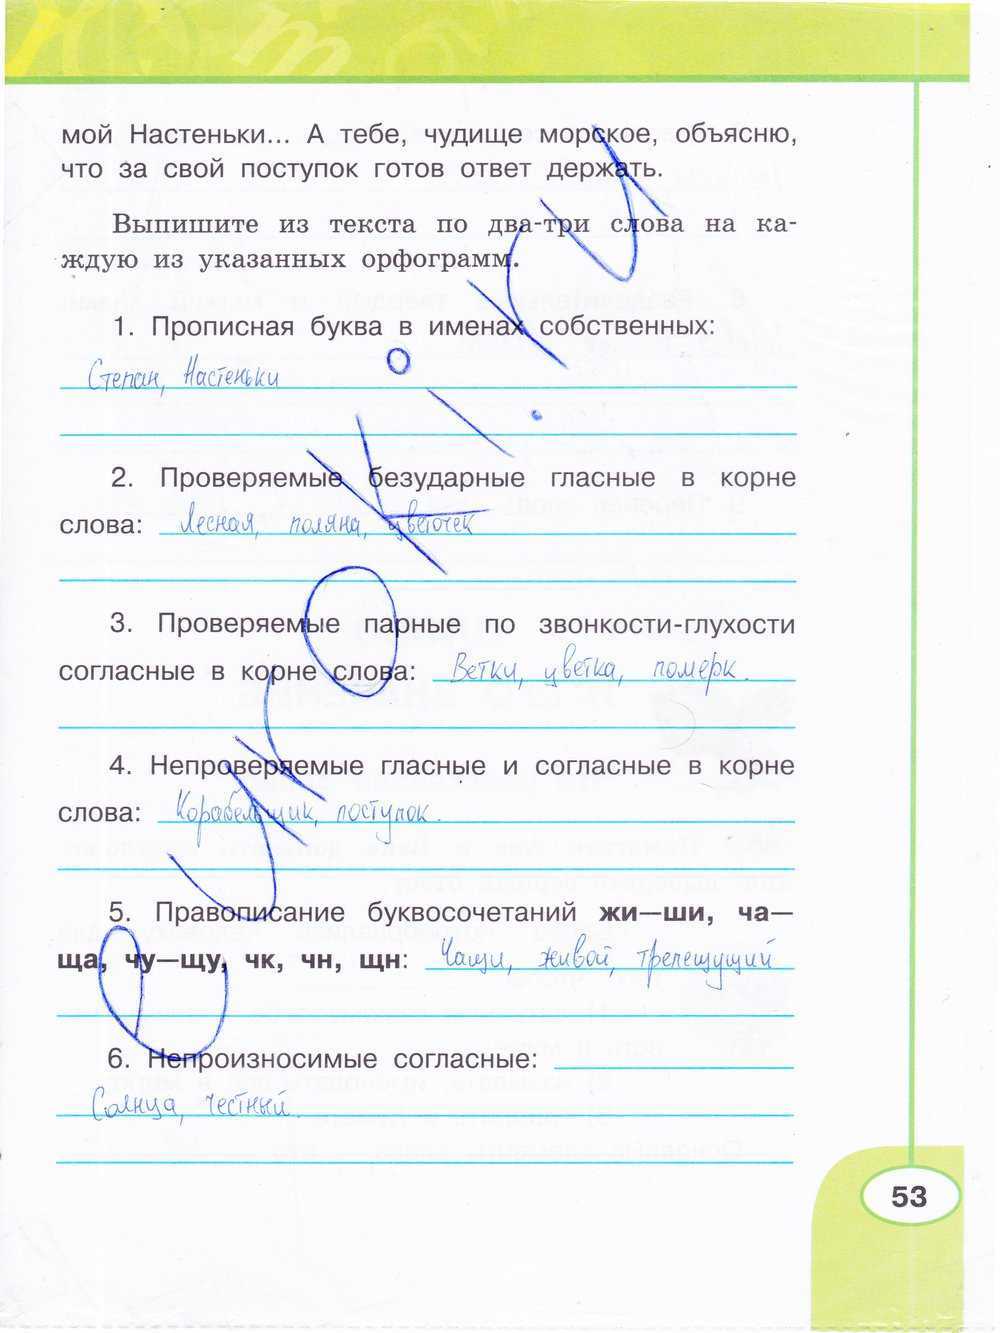 мой Настеньки... А тебе, чудище морское, объясню,
что за свой поступок готов ответ держать.
Выпишите из текста по два-три слова на ка-
ждую из указанных орфограмм.
1. Прописная буква в именах собственных:
Степан, Настеньки
2. Проверяемые безударные гласные в корне
слова: Лесная, поляна, цветочек
3. Проверяемые парные по звонкости-глухости
согласные в корне слова: Ветки, цветка, померк.
4. Непроверяемые гласные и согласные в корне
слова: Корабельщик, поступок.
5. Правописание буквосочетаний жи—ши, ча—
ща, чу—щу, чк, чн, щн: Чащи, живой, трепещущий
6. Непроизносимые согласные:
Солнца, честный.
53
eurokoki.ru